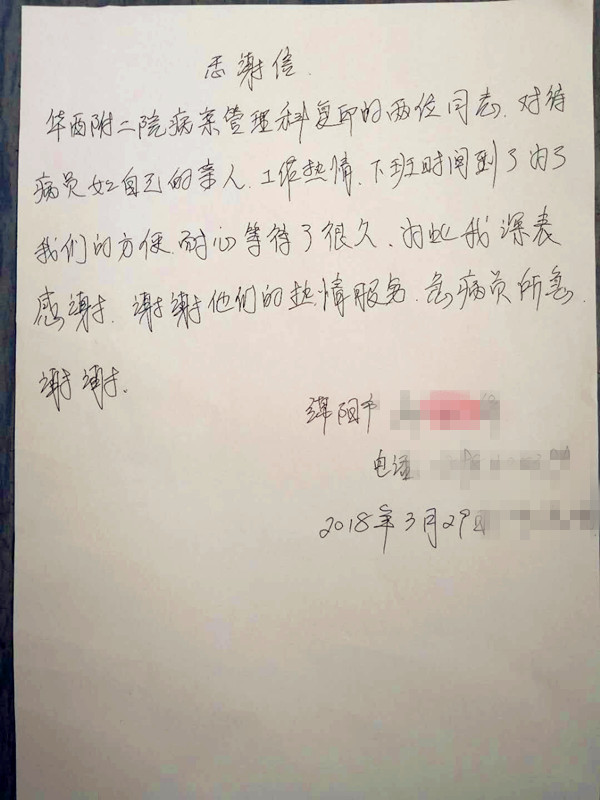 感谢信.
华西附二院病案管理科复印的两位同志.对待
病员如自己的亲人.工作热情、下班时间到了为了
我们的方便.耐心等待了很久、为此我深表
感谢.谢谢他们的热情服务.急病员所急.
谢谢.
绵阳市
电话
2018年3月29日